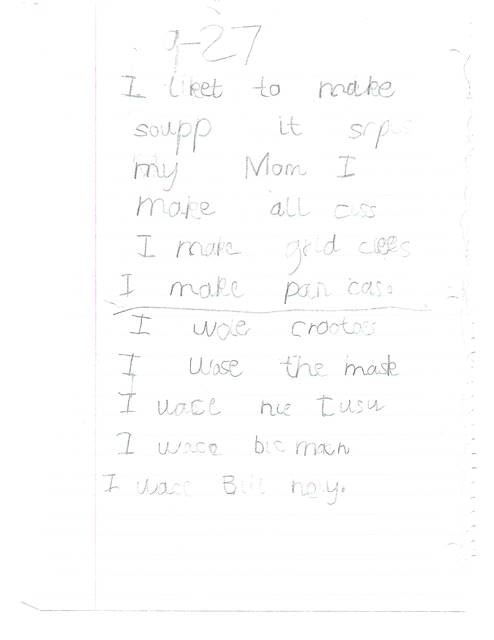 9-27
I liket to make
soupp it srps
my Mom I
make all ciss
I make grld cees
I make pan cas.
I wose crootos
I wose the mask
I wace nie
I wace bic man
I wace